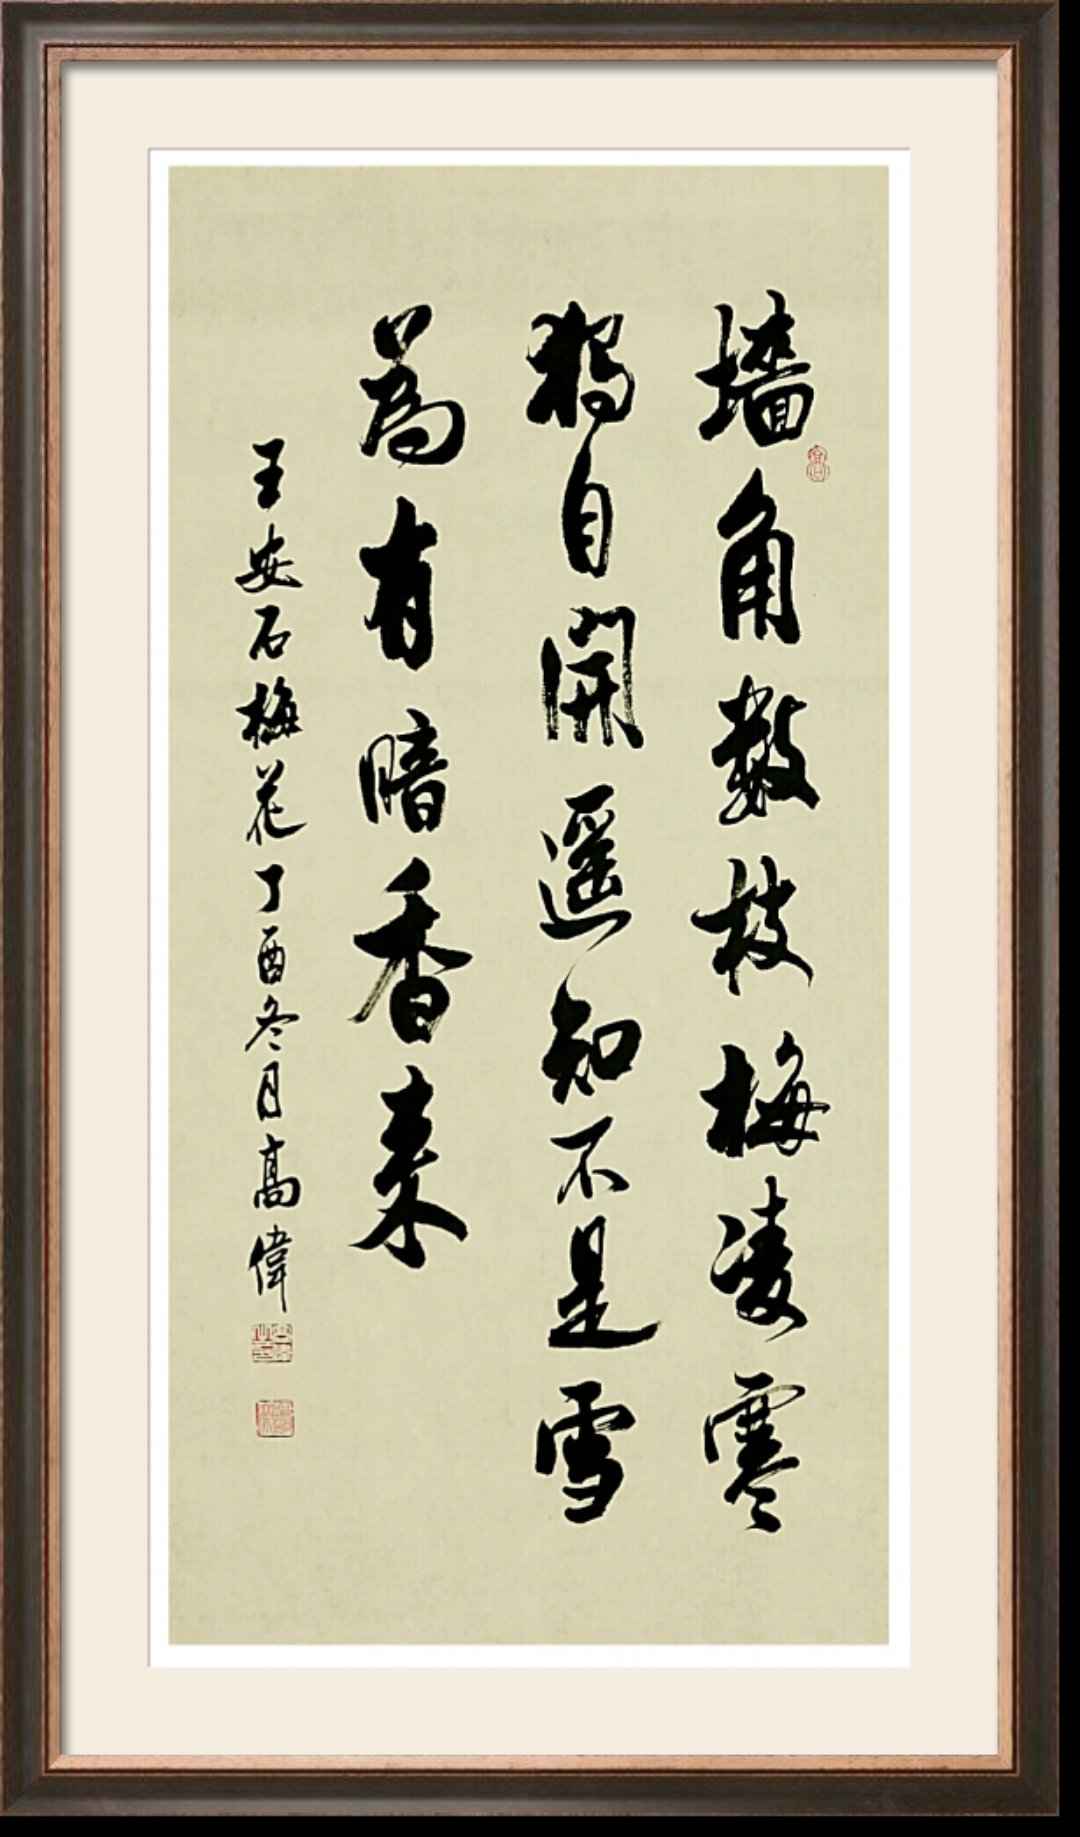 墙角數枝梅凌寒
獨自開遥知不是雪
為有暗香来
王安石梅花丁酉冬月高偉